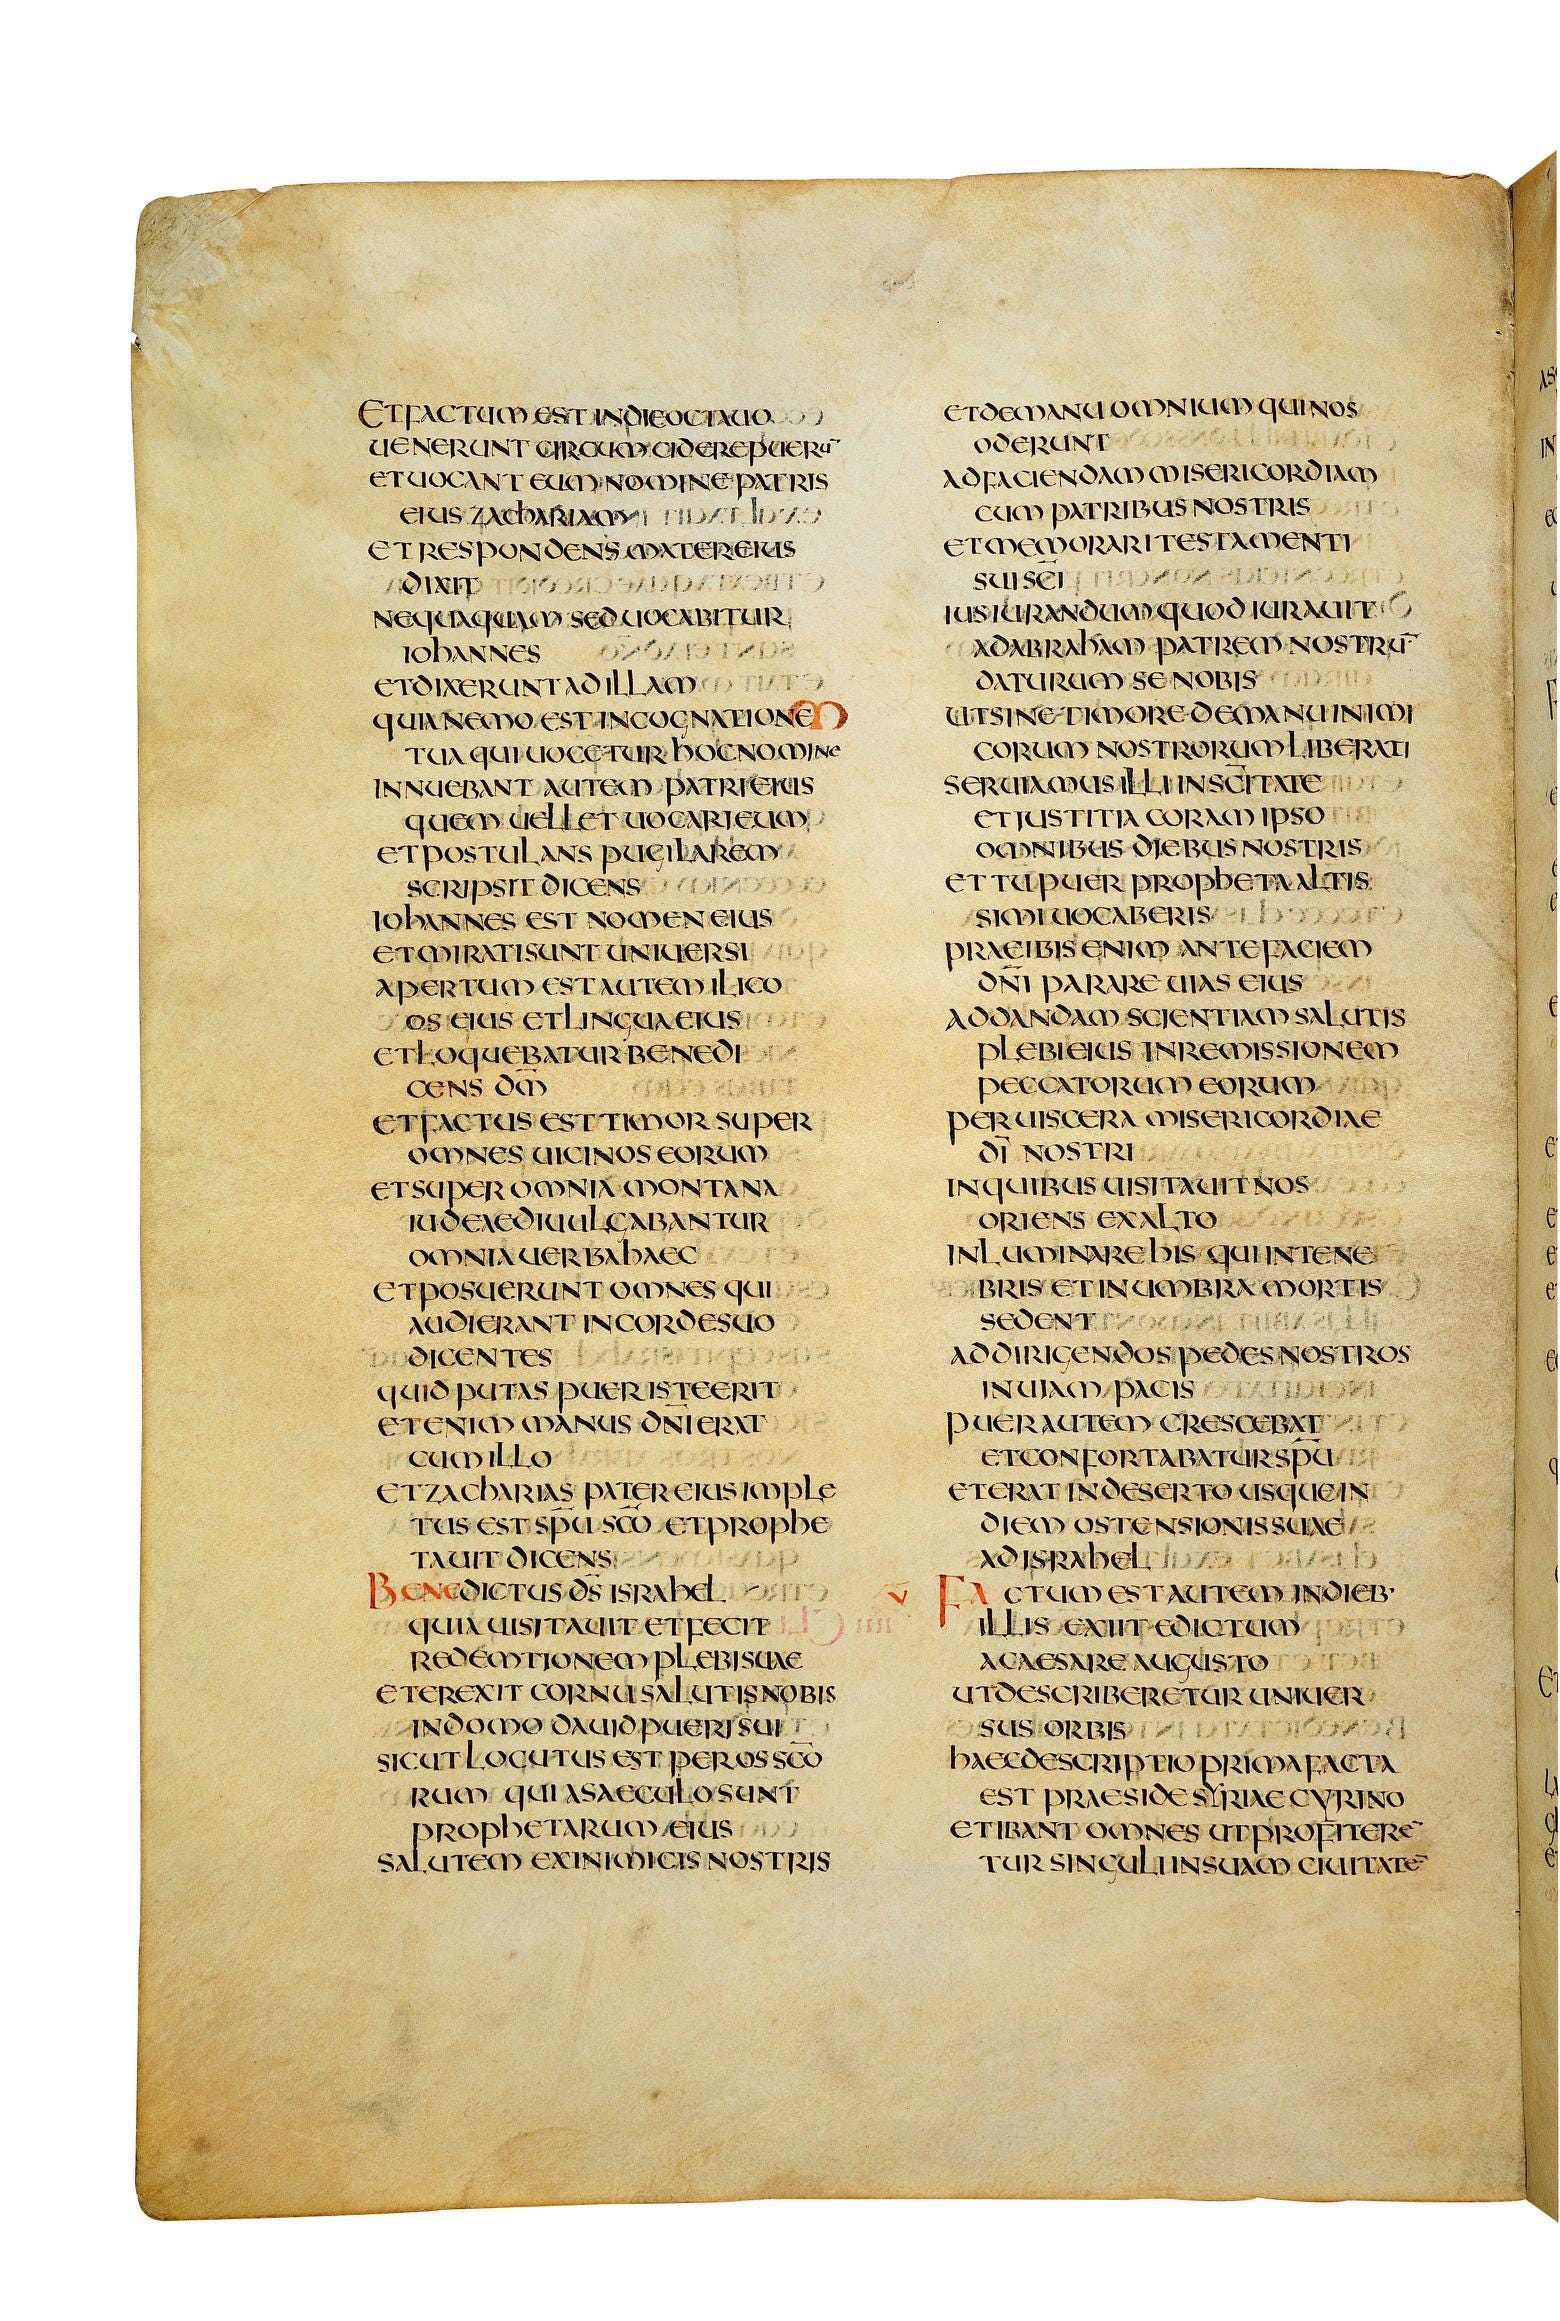 ET FACTUM EST IN DIE OCTAUO
UENERUNT CIRCUMCIDERE PUERŪ
ET UOCANT EUM NOMINE PATRIS
EIUS ZACHARIAM
ET RESPONDENS MATER EIUS
DIXIT
NEQUAQUAM SED UOCABITUR
IOHANNES
ET DIXERUNT AD ILLAM
QUIA NEMO EST IN COGNATIONE
TUA QUI UOCETUR HOC NOMINE
INNUEBANT AUTEM PATRI EIUS
QUEM UELLET UOCARI EUM
ET POSTULANS PUGILAREM
SCRIPSIT DICENS
IOHANNES EST NOMEN EIUS
ET MIRATI SUNT UNIUERSI
APERTUM EST AUTEM ILICO
OS EIUS ET LINGUA EIUS
ET LOQUEBATUR BENEDI
CENS DM̄
ET FACTUS EST TIMOR SUPER
OMNES UICINOS EORUM
ET SUPER OMNIA MONTANA
IUDEAE DIUULGABANTUR
OMNIA UERBA HAEC
ET POSUERUNT OMNES QUI
AUDIERANT IN CORDE SUO
DICENTES
QUID PUTAS PUER ISTE ERIT
ETENIM MANUS DN̄I ERAT
CUM ILLO
ET ZACHARIAS PATER EIUS IMPLE
TUS EST SPŪ SCŌ ET PROPHE
TAUIT DICENS
BENEDICTUS DS̄ ISRAHEL
QUIA UISITAUIT ET FECIT
REDEMTIONEM PLEBI SUAE
ET EREXIT CORNU SALUTIS NOBIS
IN DOMO DAUID PUERI SUI
SICUT LOCUTUS EST PER OS SCŌ
RUM QUI A SAECULO SUNT
PROPHETARUM EIUS
SALUTEM EX INIMICIS NOSTRIS
ET DE MANU OMNIUM QUI NOS
ODERUNT
AD FACIENDAM MISERICORDIAM
CUM PATRIBUS NOSTRIS
ET MEMORARI TESTAMENTI
SUI SC̄I
IUSIURANDUM QUOD IURAUIT
AD ABRAHAM PATREM NOSTRŪ
DATURUM SE NOBIS
UT SINE TIMORE DE MANU INIMI
CORUM NOSTRORUM LIBERATI
SERUIAMUS ILLI IN SC̄ITATE
ET IUSTITIA CORAM IPSO
OMNIBUS DIEBUS NOSTRIS
ET TU PUER PROPHETA ALTIS
SIMI UOCABERIS
PRAEIBIS ENIM ANTE FACIEM
DN̄I PARARE UIAS EIUS
AD DANDAM SCIENTIAM SALUTIS
PLEBI EIUS IN REMISSIONEM
PECCATORUM EORUM
PER UISCERA MISERICORDIAE
DĪ NOSTRI
IN QUIBUS UISITAUIT NOS
ORIENS EX ALTO
INLUMINARE HIS QUI IN TENE
BRIS ET IN UMBRA MORTIS
SEDENT
AD DIRIGENDOS PEDES NOSTROS
IN UIAM PACIS
PUER AUTEM CRESCEBAT
ET CONFORTABATUR SPŪ
ET ERAT IN DESERTO USQUE IN
DIEM OSTENSIONIS SUAE
AD ISRAHEL
V FACTUM EST AUTEM IN DIEB·
ILLIS EXIIT EDICTUM
A CAESARE AUGUSTO
UT DESCRIBERETUR UNIUER
SUS ORBIS
HAEC DESCRIPTIO PRIMA FACTA
EST PRAESIDE SYRIAE CYRINO
ET IBANT OMNES UT PROFITERĒ
TUR SINGULI IN SUAM CIUITATĒ